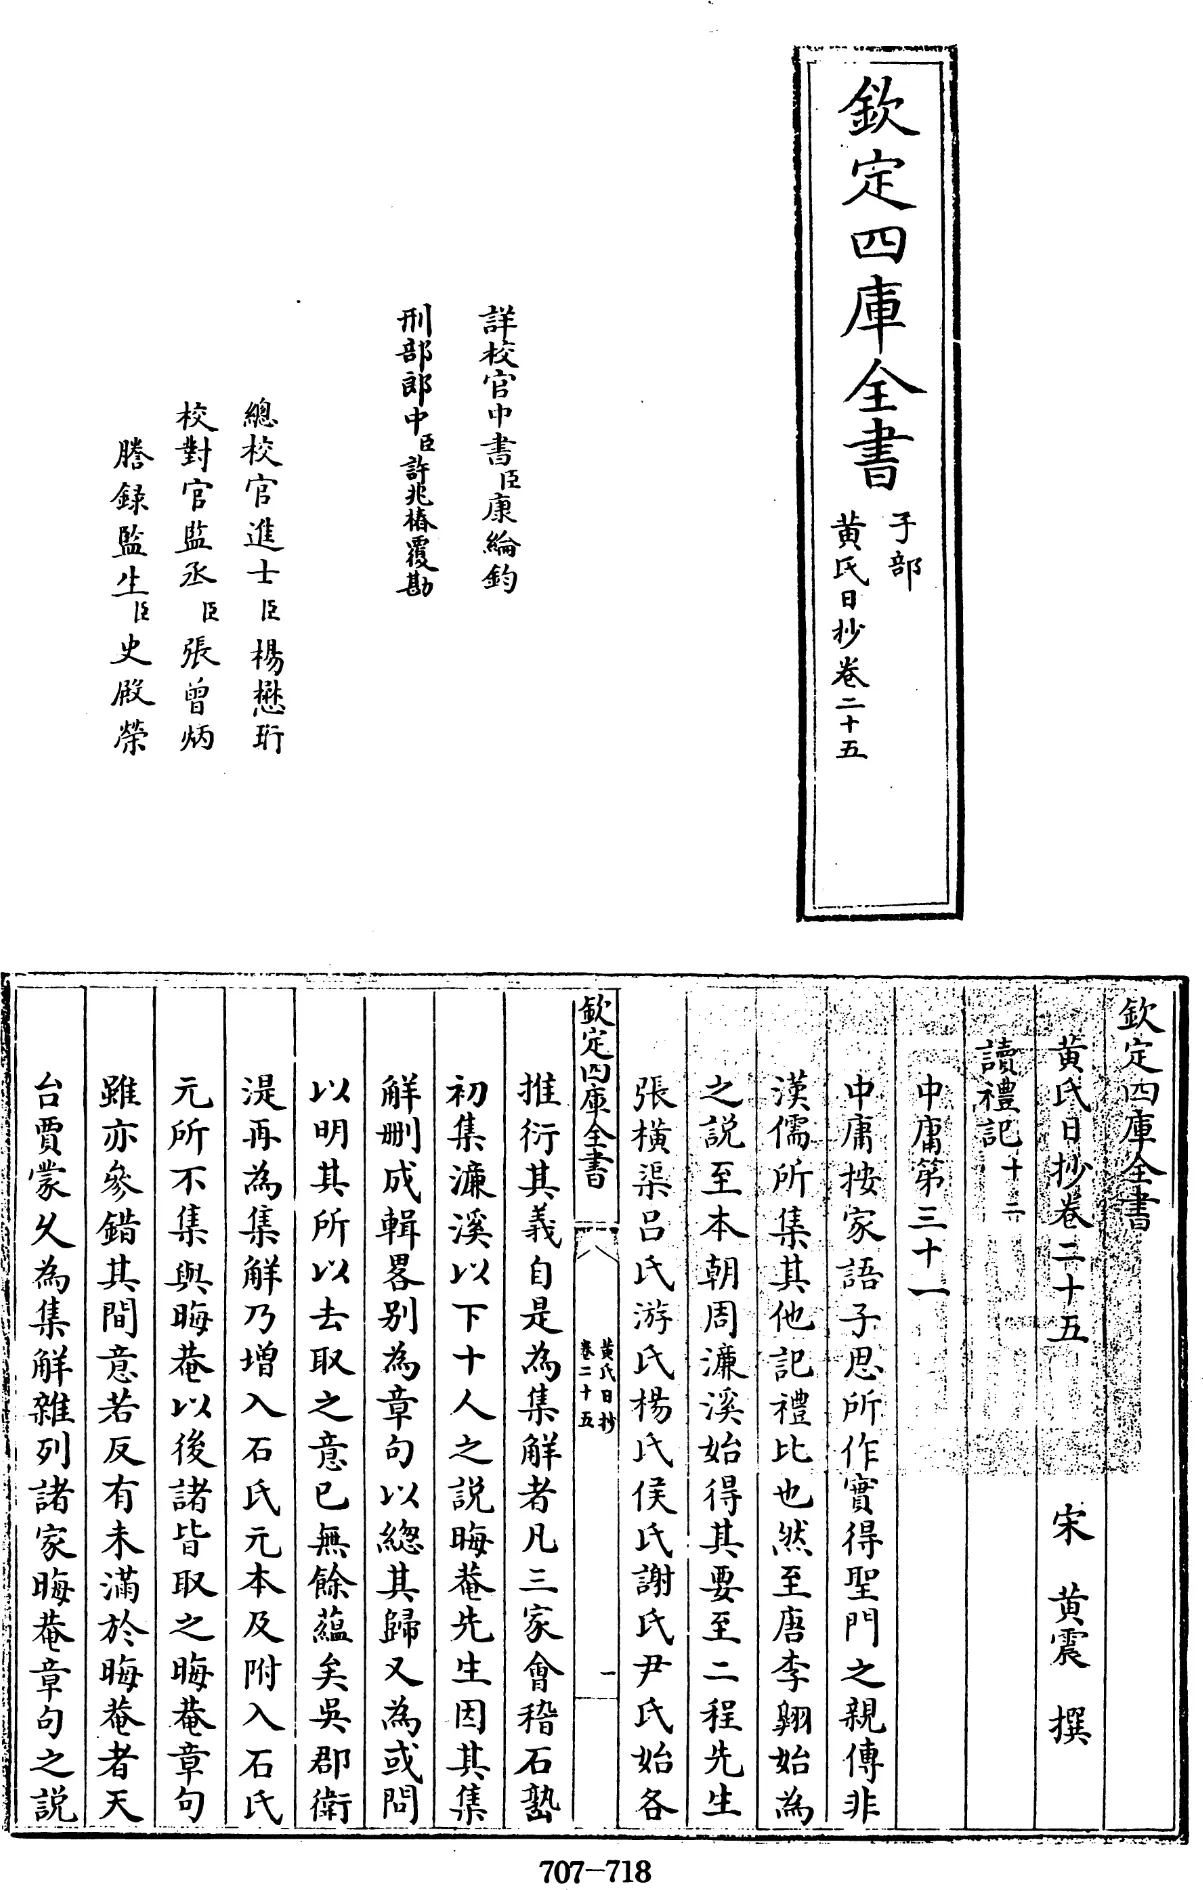 欽定四庫全書
子部
黄氏日抄卷二十五
詳校官中書臣康綸鈞
刑部郎中臣許兆椿覆勘
總校官進士臣楊懋珩
校對官監丞臣張曾炳
謄錄監生臣史殿榮
欽定四庫全書
黄氏日抄卷二十五 宋 黄震 撰
讀禮記十二
中庸第三十一
中庸按家語子思所作實得聖門之親傳非
漢儒所集其他記禮比也然至唐李翱始為
之説至本朝周濂溪始得其要至二程先生
張横渠吕氏游氏楊氏侯氏謝氏尹氏始各
欽定四庫全書
黄氏日抄
卷二十五
一
推衍其義自是為集解者凡三家會稽石𡼖
初集濂溪以下十人之説晦菴先生因其集
解刪成輯畧别為章句以總其歸又為或問
以明其所以去取之意已無餘蘊矣吳郡衛
湜再為集解乃增入石氏元本及附入石氏
元所不集與晦菴以後諸皆取之晦菴章句
雖亦參錯其間意若反有未滿於晦菴者天
台賈蒙乆為集解雜列諸家晦菴章句之説
707-718